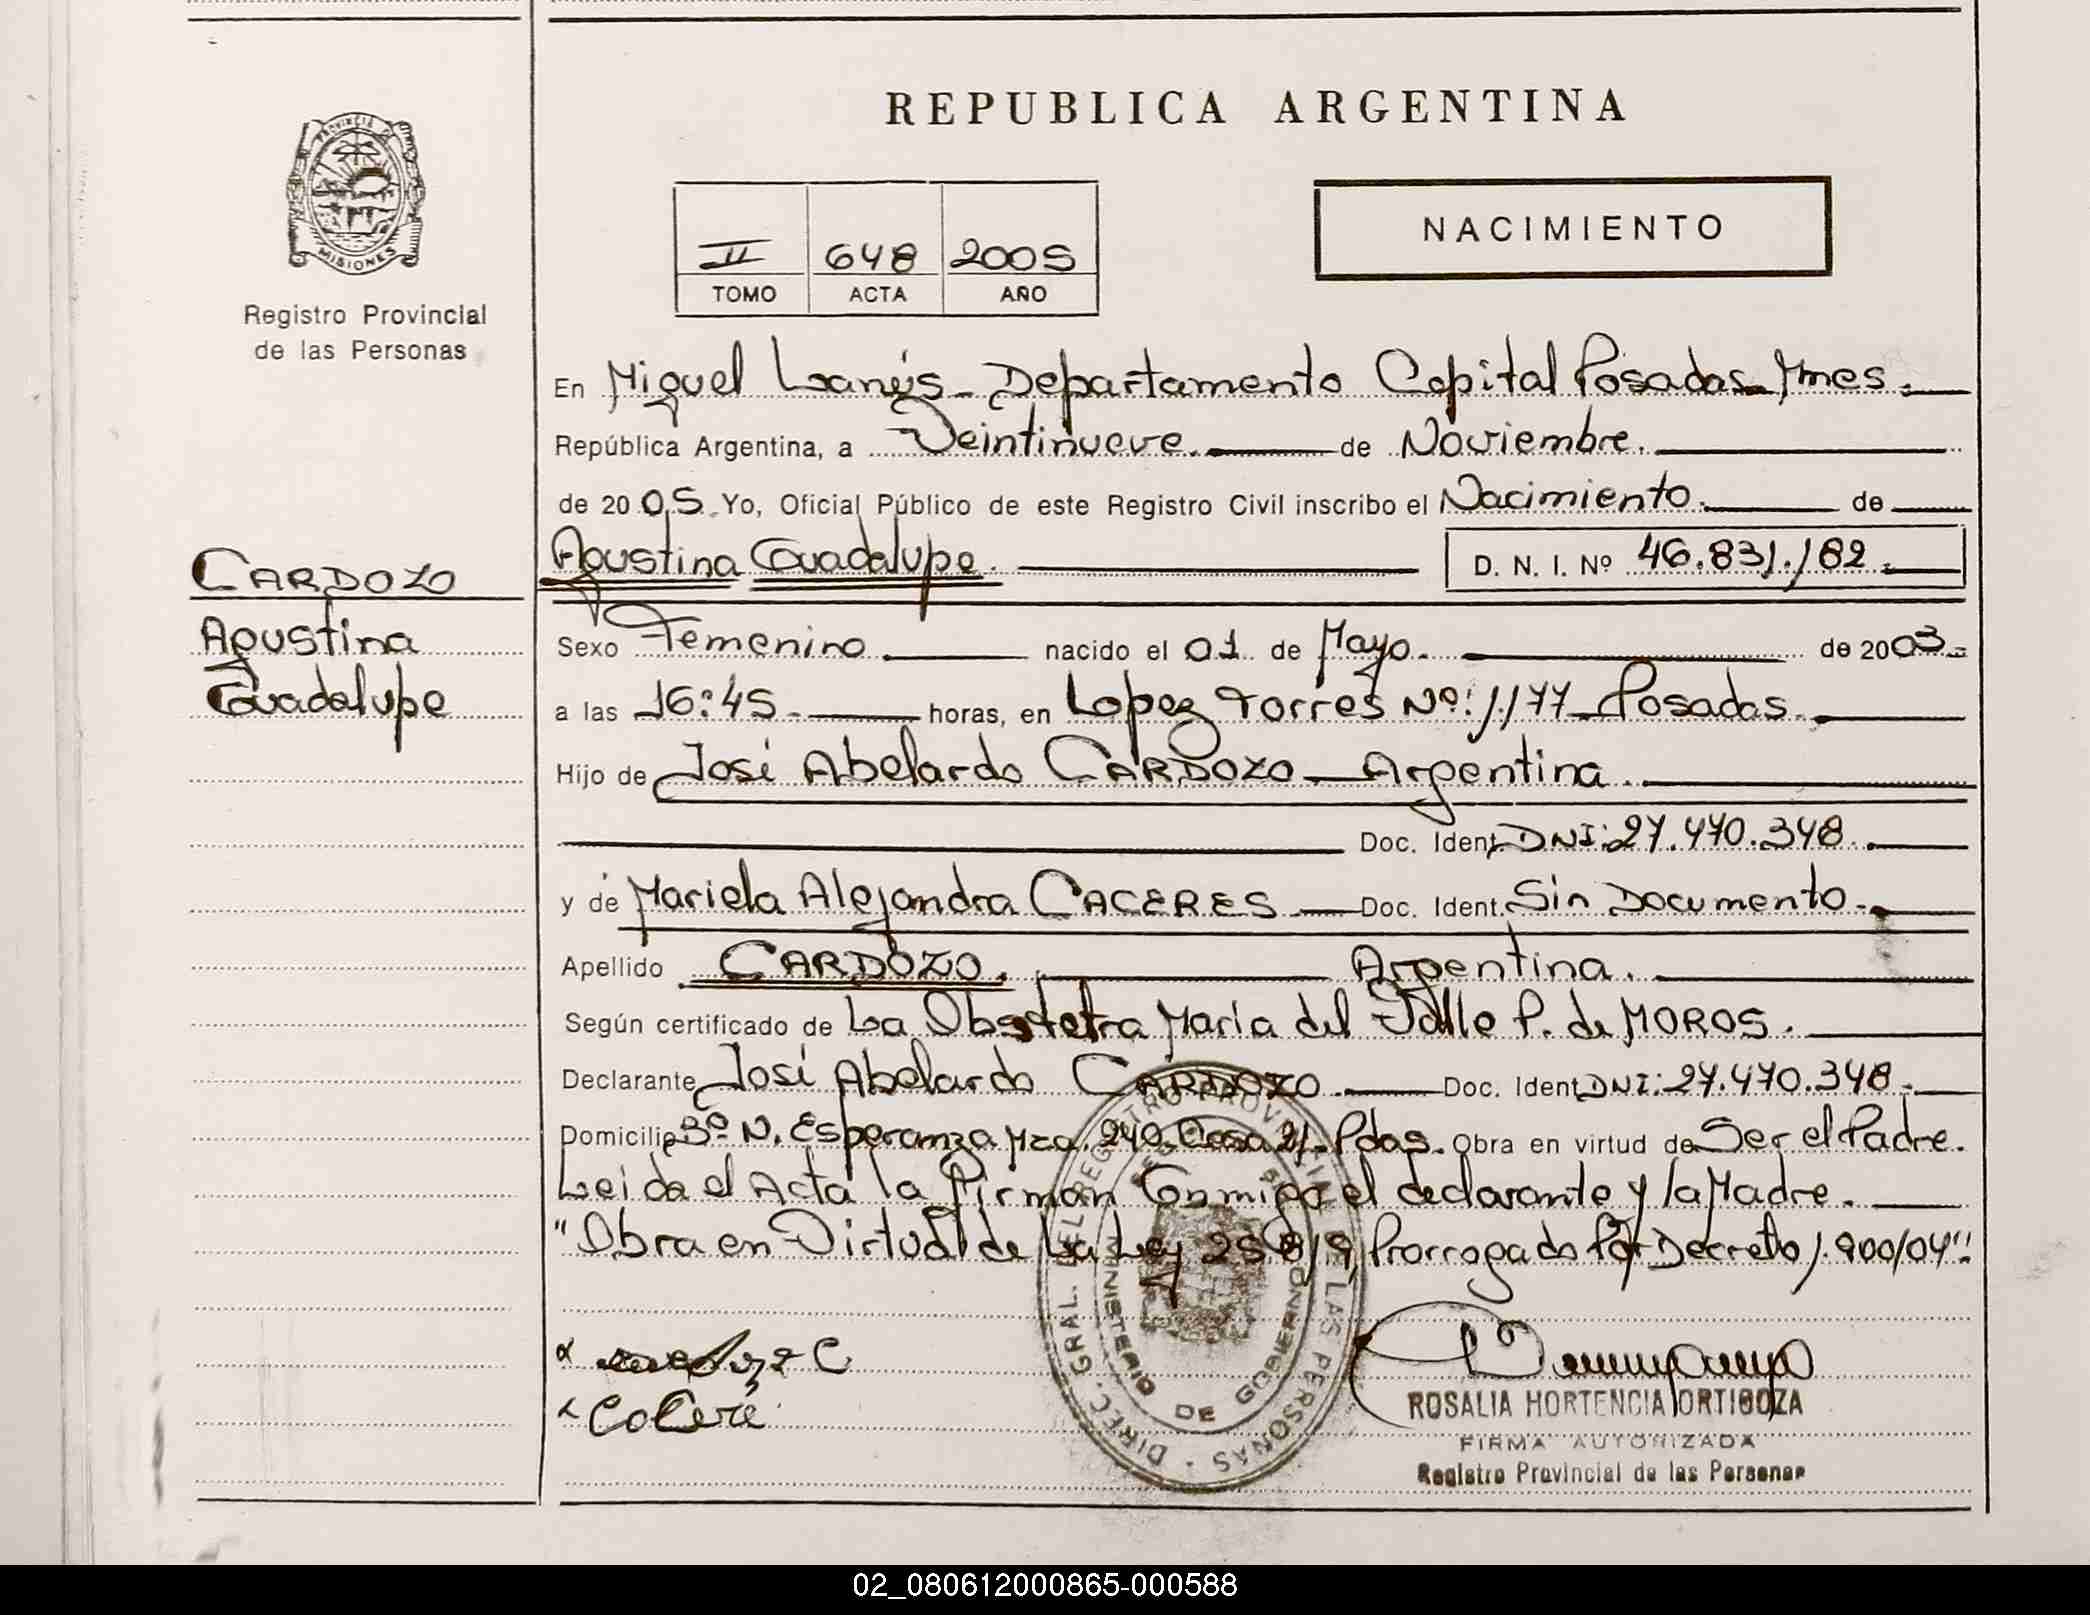 REPUBLICA ARGENTINA
PROVINCIA DE
MISIONES
Registro Provincial
de las Personas
II 648 2005
TOMO ACTA AÑO
NACIMIENTO
En Miguel Lanús - Departamento Capital Posadas - Mnes.
República Argentina, a Veintinueve. de Noviembre.
de 2005. Yo, Oficial Público de este Registro Civil inscribo el Nacimiento. de
CARDOZO
Agustina
Guadalupe
Agustina Guadalupe. D. N. I. Nº 46.831.182.
Sexo Femenino nacido el 01 de Mayo. de 2003.
a las 16:45. horas, en Lopez Torres Nº: 1.177 - Posadas.
Hijo de José Abelardo CARDOZO - Argentina.
Doc. Ident. DNI: 27.470.348.
y de Mariela Alejandra CACERES - Doc. Ident. Sin Documento.
Apellido CARDOZO. Argentina.
Según certificado de La Obstetra Maria del Valle P. de MOROS.
Declarante José Abelardo CARDOZO. Doc. Ident. DNI: 27.470.348.
Domicilio Bº N. Esperanza Mza. 240. Casa 21 - Pdas. Obra en virtud de Ser el Padre.
Leida el Acta la Firman Conmigo el declarante y la Madre.
"Obra en Virtud de La Ley 25819, Prorrogado Por Decreto 1.900/04"
DIREC. GRAL. DEL REGISTRO PROVINCIAL DE LAS PERSONAS
MINISTERIO DE GOBIERNO
ROSALIA HORTENCIA ORTIGOZA
FIRMA AUTORIZADA
Registro Provincial de las Personas
02_080612000865-000588